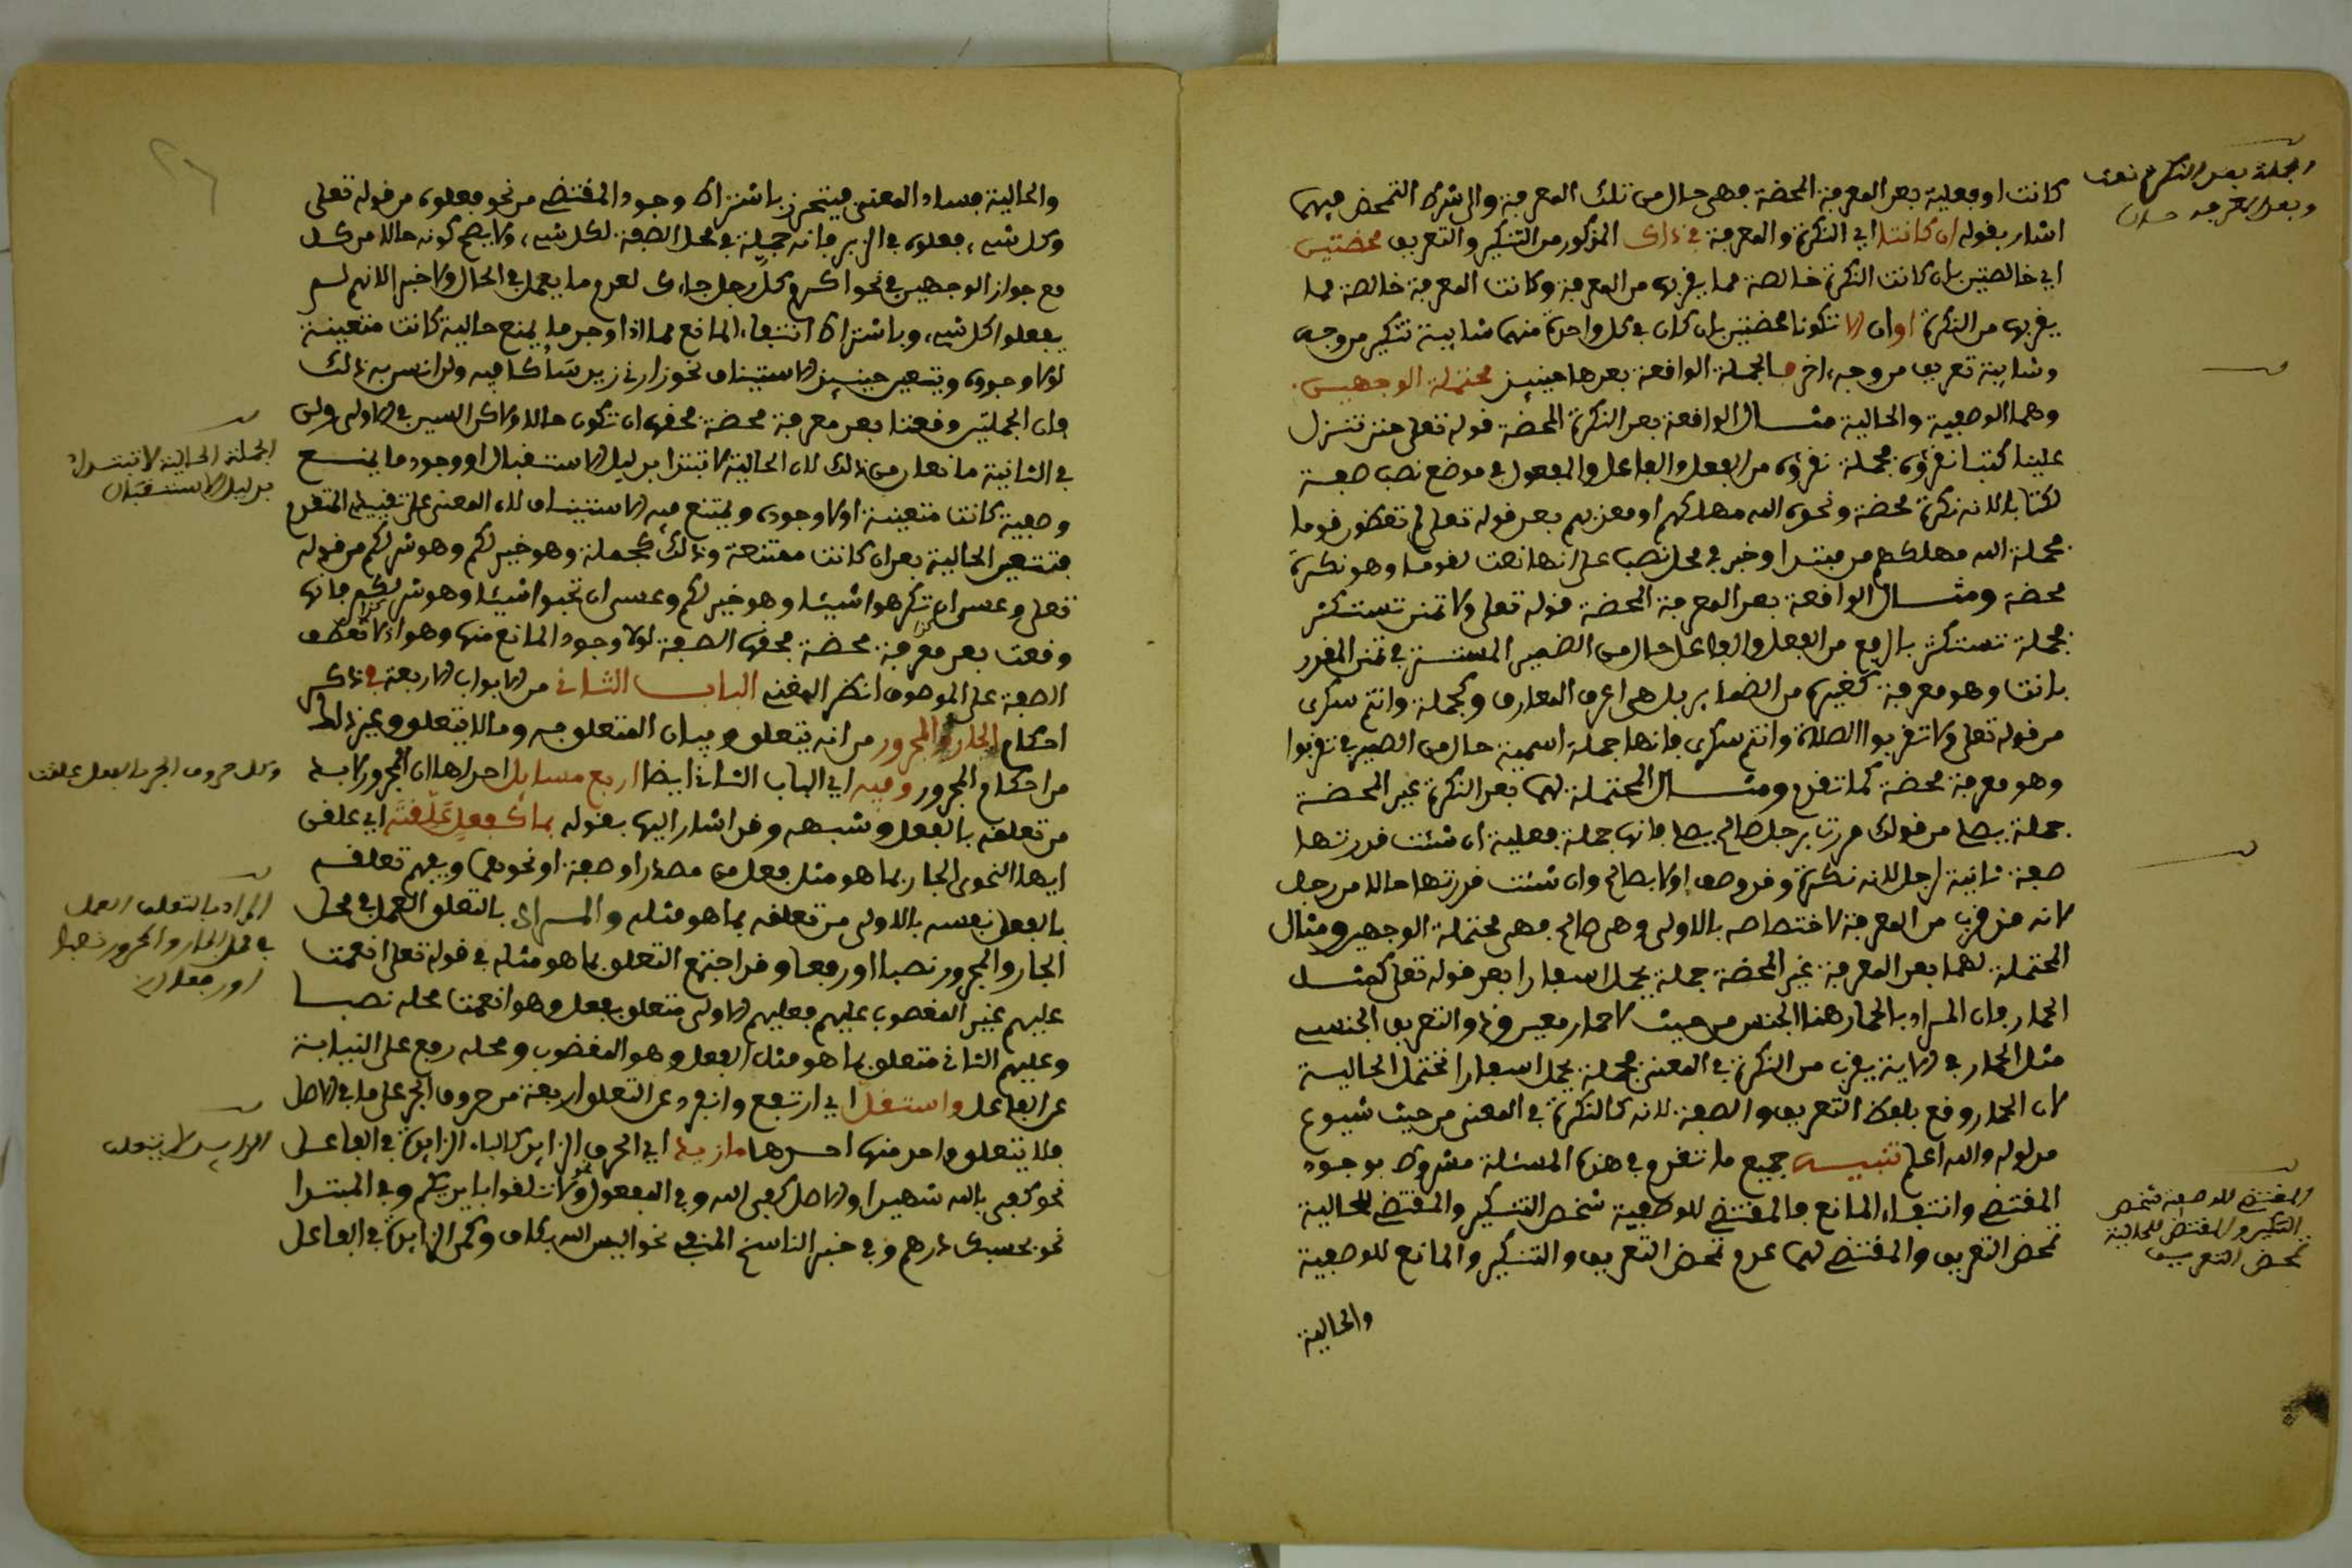 الجملة بعد النكرة نعت
وبعد المعرفة حال
كانت او فعلية بعد المعرفة المحضة فهي حال من تلك المعرفة والى شرط التمحض فيهما
اشار بقوله ان كانتا اي النكرة والمعرفة في ذاك المذكور من التنكير والتعريف محضتين
اي خالصتين بان كانت النكرة خالصة مما يقربها من المعرفة وكانت المعرفة خالصة مما
يقربها من النكرة او ان لا تكونا محضتين بان كان في كل واحدة منهما شايبة تنكير من وجه
وشايبة تعريف من وجه اخر فالجملة الواقعة بعدها حينيذ محتملة الوجهين
وهما الوصفية والحالية مثال الواقعة بعد النكرة المحضة قوله تعلى حتى تنزل
علينا كتبا نقرؤه فجملة نقرؤه من الفعل والفاعل والمفعول في موضع نصب صفة
لكتابا لانه نكرة محضة ونحوه الله مهلكهم او معذبهم بعد قوله تعلى لم تعظون قوما
فجملة الله مهلكهم من مبتدا وخبر في محل نصب على انها نعت لقوما وهو نكرة
محضة ومثال الواقعة بعد المعرفة المحضة قوله تعلى ولا تمنن تستكثر
فجملة تستكثر بالرفع من الفعل والفاعل حال من الضمير المستتر في تمنن المقدر
بانت وهو معرفة كغيره من الضماير بل هي اعرف المعارف وكجملة وانتم سكرى
من قوله تعلى ولا تقربوا الصلاة وانتم سكرى فانها جملة اسمية حال من الضمير في تقربوا
وهو معرفة محضة كما تقدم ومثال المحتملة لهما بعد النكرة غير المحضة
جملة يصلي من قولك مررت برجل صالح يصلي فانها جملة فعلية ان شئت قدرتها
صفة ثانية لرجل لانه نكرة وقد وصف اولا بصالح وان شئت قدرتها حالا من رجل
لانه قد قرب من المعرفة لاختصاصه بالاولى وهي صالح فهي محتملة الوجهين ومثال
المحتملة لهما بعد المعرفة غير المحضة جملة يحمل اسفارا بعد قوله تعلى كمثل
الحمار فان المراد بالحمار هنا الجنس من حيث لا حمار معين وذو التعريف الجنسي
مثل الحمار في الاية يقرب من النكرة في المعنى فجملة يحمل اسفارا تحتمل الحالية
لان الحمار وقع بلفظ التعريف والصفة لانه كالنكرة في المعنى من حيث شيوع
مدلوله والله اعلم تنبيه جميع ما تقدم في هذه المسئلة مشروط بوجود
المقتضي وانتفاء المانع فالمقتضي للوصفية تمحض التنكير والمقتضي للحالية
تمحض التعريف والمقتضي لهما عدم تمحض التعريف والتنكير والمانع للوصفية
المقتضي للوصفية تمحض
التنكير والمقتضي للحالية
تمحض التعريف
والحالية
والحالية فساد المعنى فيتحرز باشتراط وجود المقتضي من نحو فعلوه من قوله تعلى
وكل شيء فعلوه في الزبر فانه جملة في محل الصفة لكل شيء ولا يصح كونه حالا من كل
مع جواز الوجهين في نحو اكرم كل رجل جاءك لعدم ما يعمل في الحال ولا خبر الانهم لم
يفعلوا كل شيء وباشتراط انتفاء المانع مما اذا وجد ما يمنع حالية كانت متعينة
لولا وجوده ويتعين حينيذ الاستيناف نحو زارني زيد سأكافيه ولن انسى له ذلك
فان الجملتين وقعتا بعد معرفة محضة فحقهما ان تكون حالا ولاكن السين في الاولى ولن
في الثانية مانعان من ذلك لان الحالية لا تبتدا بدليل الاستقبال او وجود ما يمنع
الجملة الحالية لا تبتدا
بدليل الاستقبال
وصفية كانت متعينة لولا وجوده ويمتنع فيه الاستيناف لان المعنى على تقييد المتقدم
فتتعين الحالية بعد ان كانت ممتنعة وذلك كجملة وهو خير لكم وهو شر لكم من قوله
تعلى وعسى ان تكرهوا شيئا وهو خير لكم وعسى ان تحبوا شيئا وهو شر لكم فانها
وقعت بعد معرفة محضة فحقها الصفة لولا وجود المانع منها وهو اذ لا تعطف
كذا كذا
الصفة على الموصوف انظر المغني الباب الثاني من الابواب الاربعة في ذكر
احكام الجار والمجرور من انه يتعلق وبيان المتعلق به وما لا يتعلق وغير ذلك
من احكام المجرور وفيه اي الباب الثاني ايضا اربع مسايل احداها ان المجرور لا بد
وكل حروف الجر بالفعل علقت
من تعلقه بالفعل وشبهه وقد اشار اليها بقوله بما كفعل علقت اي علقن
ايها النحوي الجار بما هو مثل فعل من مصدر او صفة او نحوهما ويفهم تعلقه
بالفعل نفسه بالاولى من تعلقه بما هو مثله والمراد بالتعلق العمل في محل
المراد بالتعلق العمل
في محل الجار والمجرور نصبا
او رفعا
الجار والمجرور نصبا او رفعا وقد اجتمع التعلق بما هو مثله في قوله تعلى انعمت
عليهم غير المغضوب عليهم فعليهم الاولى متعلق بفعل وهو انعمت محله نصبا
وعليهم الثاني متعلق بما هو مثل الفعل وهو المغضوب ومحله رفع على النيابة
عن الفاعل واستقل اي ارتفع وانفرد عن التعلق اربعة من حروف الجر على ما في الاصل
فلا يتعلق واحد منها احدها ما زيد اي الحرف الزايد كالباء الزايدة في الفاعل
الزايد لا يتعلق
نحو كفى بالله شهيدا والاصل كفى الله وفي المفعول نحو ولا تلقوا بايديكم وفي المبتدا
نحو بحسبك درهم وفي خبر الناسخ المنفي نحو اليس الله بكاف وكمن الزايدة في الفاعل